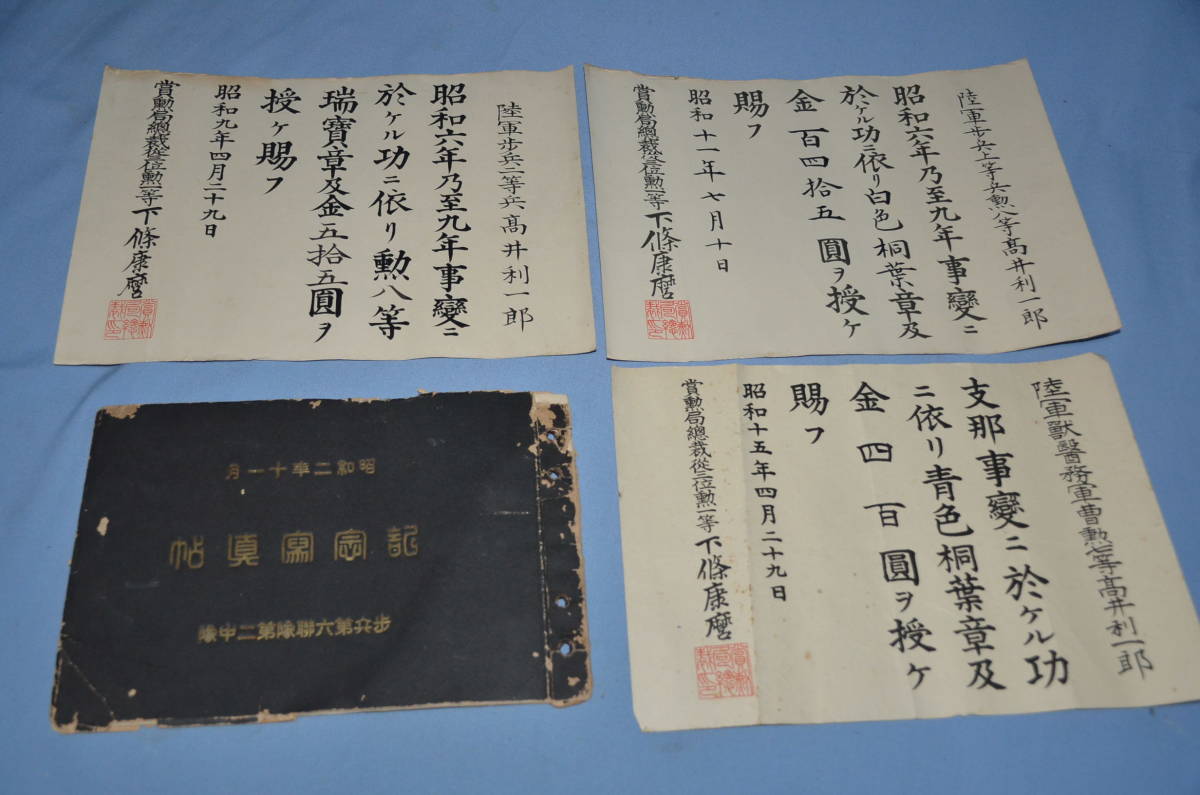 陸軍歩兵二等兵高井利一郎
昭和六年乃至九年事變ニ
於ケル功ニ依リ勲八等
瑞寶章及金五拾五圓ヲ
授ケ賜フ
昭和九年四月二十九日
賞勲局總裁從三位勲一等下條康麿
陸軍歩兵上等兵勲八等高井利一郎
昭和六年乃至九年事變ニ
於ケル功ニ依リ白色桐葉章及
金百四拾五圓ヲ授ケ
賜フ
昭和十一年七月十日
賞勲局總裁從三位勲一等下條康麿
昭和二年十一月
記念寫眞帖
歩兵第六聯隊第二中隊
陸軍獸醫務軍曹勲七等高井利一郎
支那事變ニ於ケル功
ニ依リ青色桐葉章及
金四百圓ヲ授ケ
賜フ
昭和十五年四月二十九日
賞勲局總裁從三位勲一等下條康麿